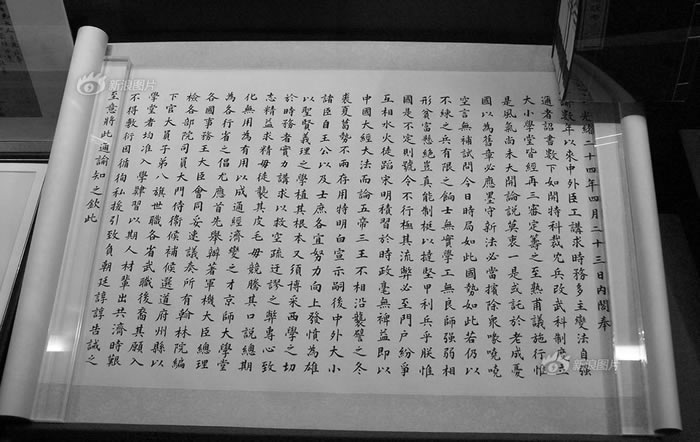 光緒二十四年四月二十三日內閣奉
諭數年以來中外臣工講求時務多主變法自強
邇者詔書數下如開特科裁冗兵改武科制度立
大小學堂皆經再三審定籌之至熟甫議施行惟
是風氣尚未大開論說莫衷一是或託於老成憂
國以為舊章必應墨守新法必當擯除衆喙嘵嘵
空言無補試問今日時局如此國勢如此若仍以
不練之兵有限之餉士無實學工無良師強弱相
形貧富懸絕豈真能制梃以撻堅甲利兵乎朕惟
國是不定則號令不行極其流弊必至門戶紛爭
互相水火徒蹈宋明積習於時政毫無裨益即以
中國大經大法而論五帝三王不相沿襲譬之冬
裘夏葛勢不兩存用特明白宣示嗣後中外大小
諸臣自王公以及士庶各宜努力向上發憤為雄
以聖賢義理之學植其根本又須博采西學之切
於時務者實力講求以救空疏迂謬之弊專心致
志精益求精毋徒襲其皮毛毋競騰其口說總期
化無用為有用以成通經濟變之才京師大學堂
為各行省之倡尤應首先舉辦著軍機大臣總理
各國事務王大臣會同妥速議奏所有翰林院編
檢各部院司員大門侍衛候補候選道府州縣以
下官大員子弟八旗世職各省武職後裔其願入
學堂者均准入學肄習以期人材輩出共濟時艱
不得敷衍因循徇私援引致負朝廷諄諄告誡之
至意將此通諭知之欽此
新浪图片
新浪图片